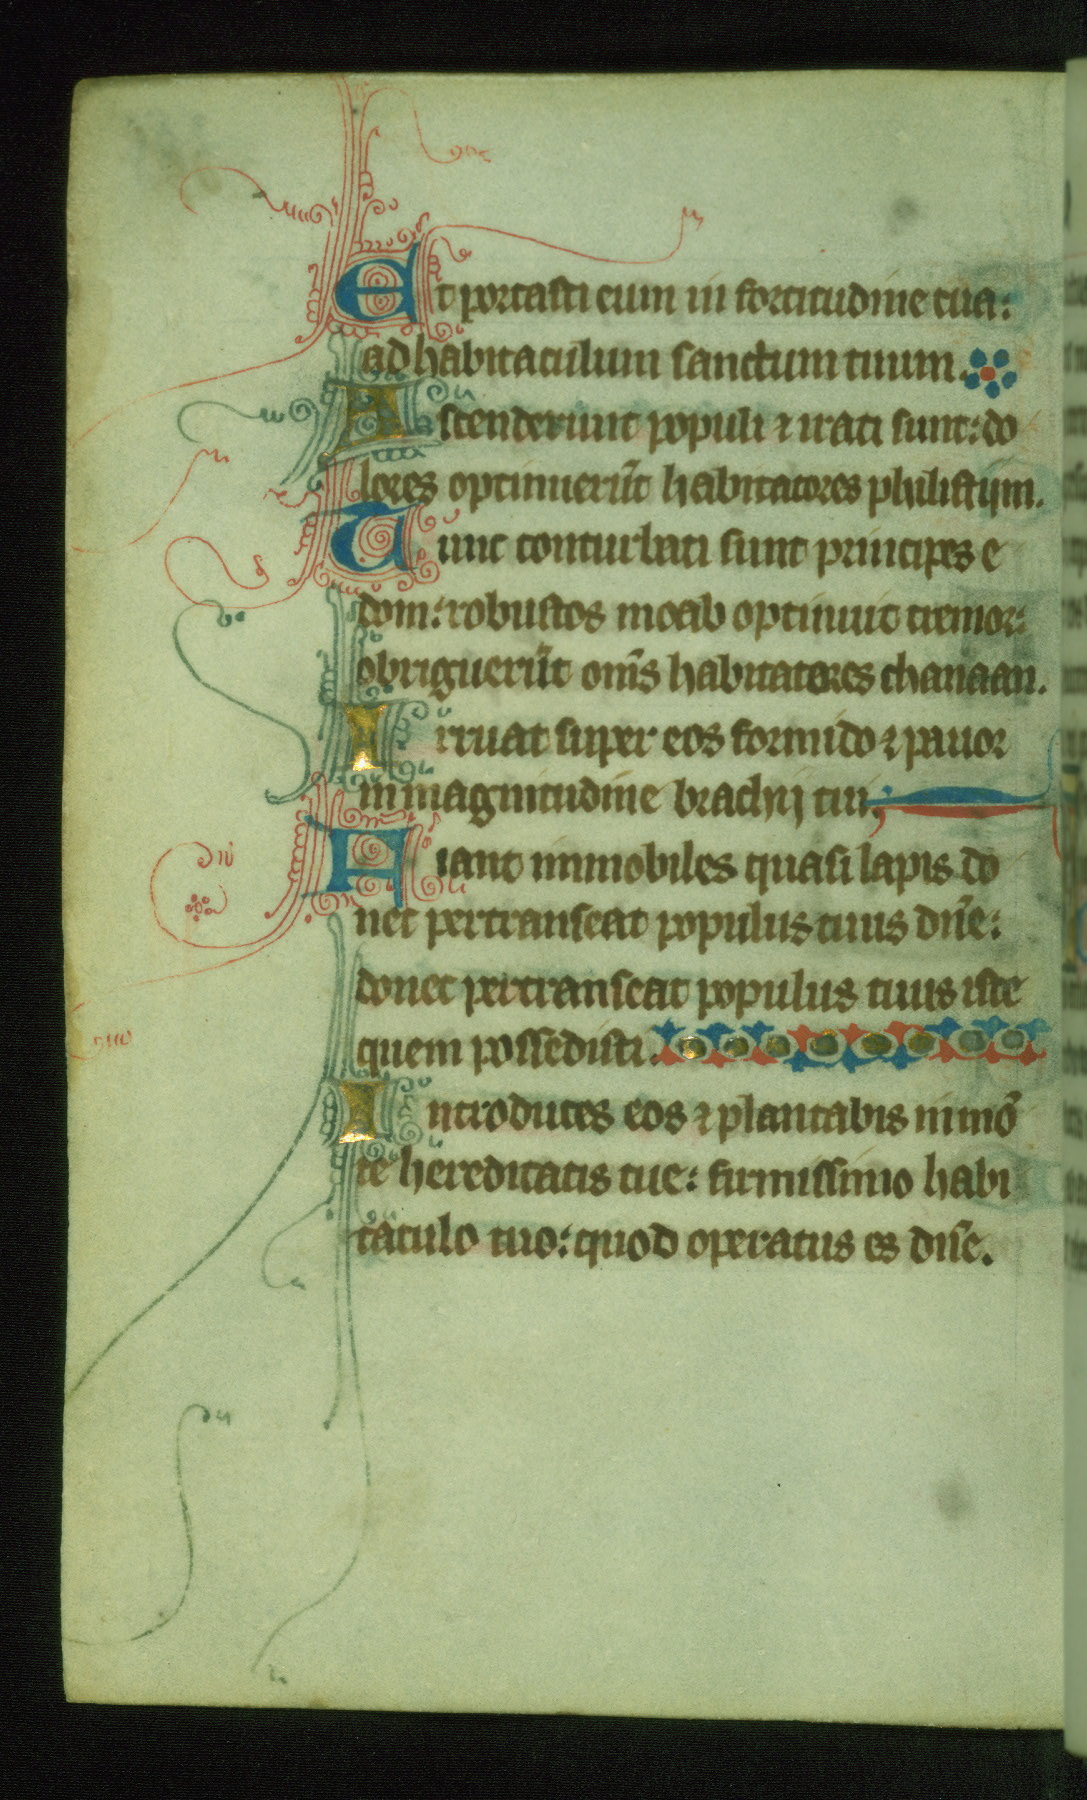 Et portasti eum in fortitudine tua:
ad habitaculum sanctum tuum.
Ascenderunt populi ⁊ irati sunt: do
lores optinuerūt habitatores philistijm.
Tunc conturbati sunt principes e
dom: robustos moab optinuit tremor:
obriguerūt om̄s habitatores chanaan.
Irruat super eos formido ⁊ pauor
in magnitudine brachij tui;
Fiant immobiles quasi lapis do
nec pertranseat populus tuus dn̄e:
donec pertranseat populus tuus iste
quem possedisti.
Introduces eos ⁊ plantabis in mō
te hereditatis tue: firmissimo habi
taculo tuo: quod operatus es dn̄e.